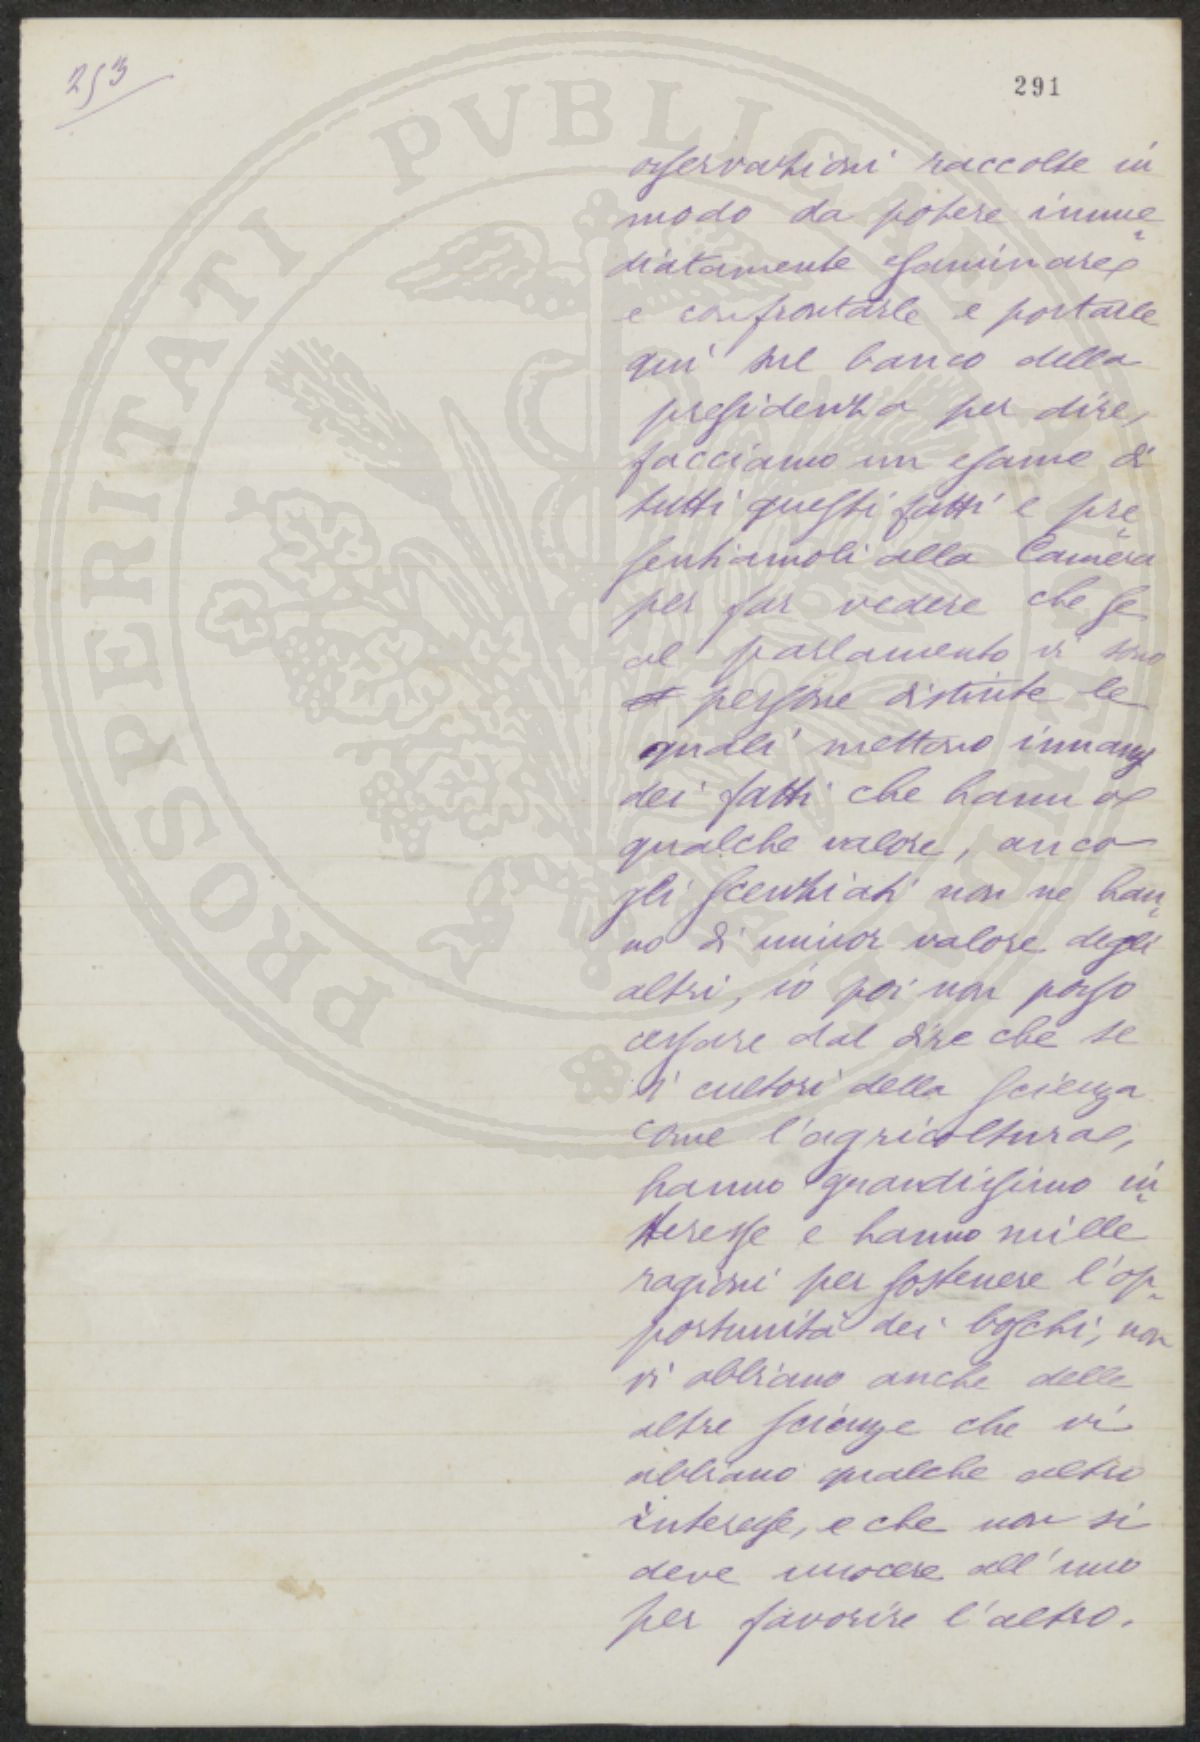 253
291
osservazioni raccolte in
modo da potere imme
diatamente esaminare
e confrontarle e portarle
qui sul banco della
presidenza per dire,
facciamo un esame di
tutti questi fatti e pre
sentiamoli alla Camera
per far vedere che se
al parlamento vi sono
persone distinte le
quali mettono innanzi
dei fatti che hanno
qualche valore, anco
gli scenziati non ne han
no di minor valore degli
altri, io poi non posso
cessare dal dire che se
i cultori della scienza
come l'agricoltura,
hanno grandissimo in
teresse e hanno mille
ragioni per sostenere l'op
portunità dei boschi, non
vi abbiano anche delle
altre scienze che vi
abbiano qualche altro
interesse, e che non si
deve nuocere all'uno
per favorire l'altro.
PROSPERITATI PVBLICAE